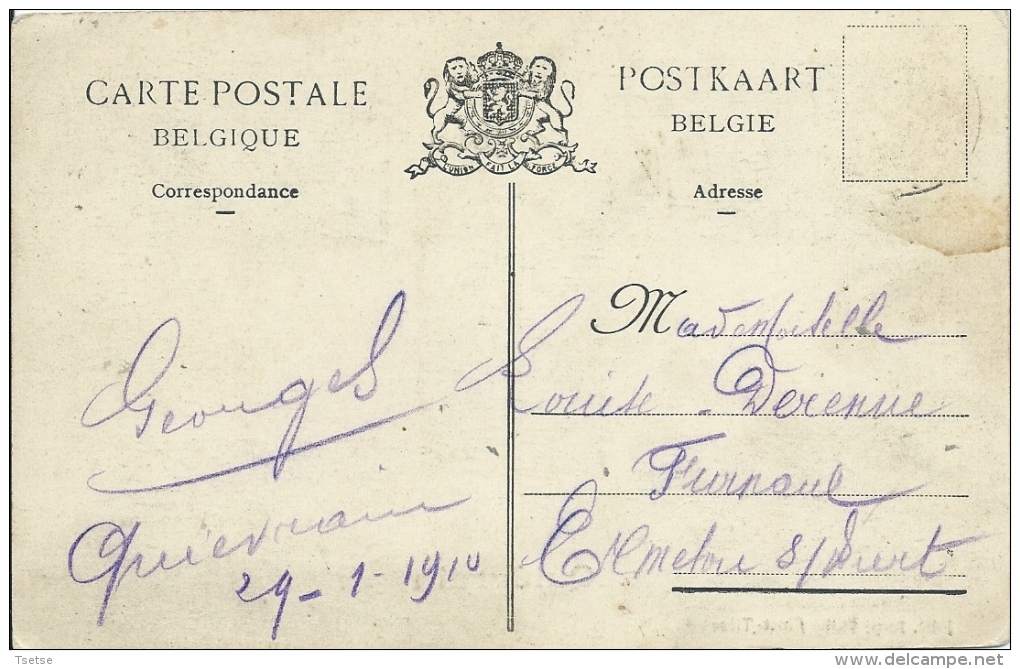 CARTE POSTALE
BELGIQUE
Correspondance
L'UNION FAIT LA FORCE
POSTKAART
BELGIE
Adresse
Georges
Quievrain
29-1-1910
Mademoiselle
Louise Derenne
Furnaux
Ermeton s/Biert
Tsetse
delcampe.net